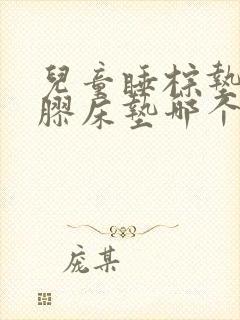 兒童睡棕墊
膠床墊哪个
庞某